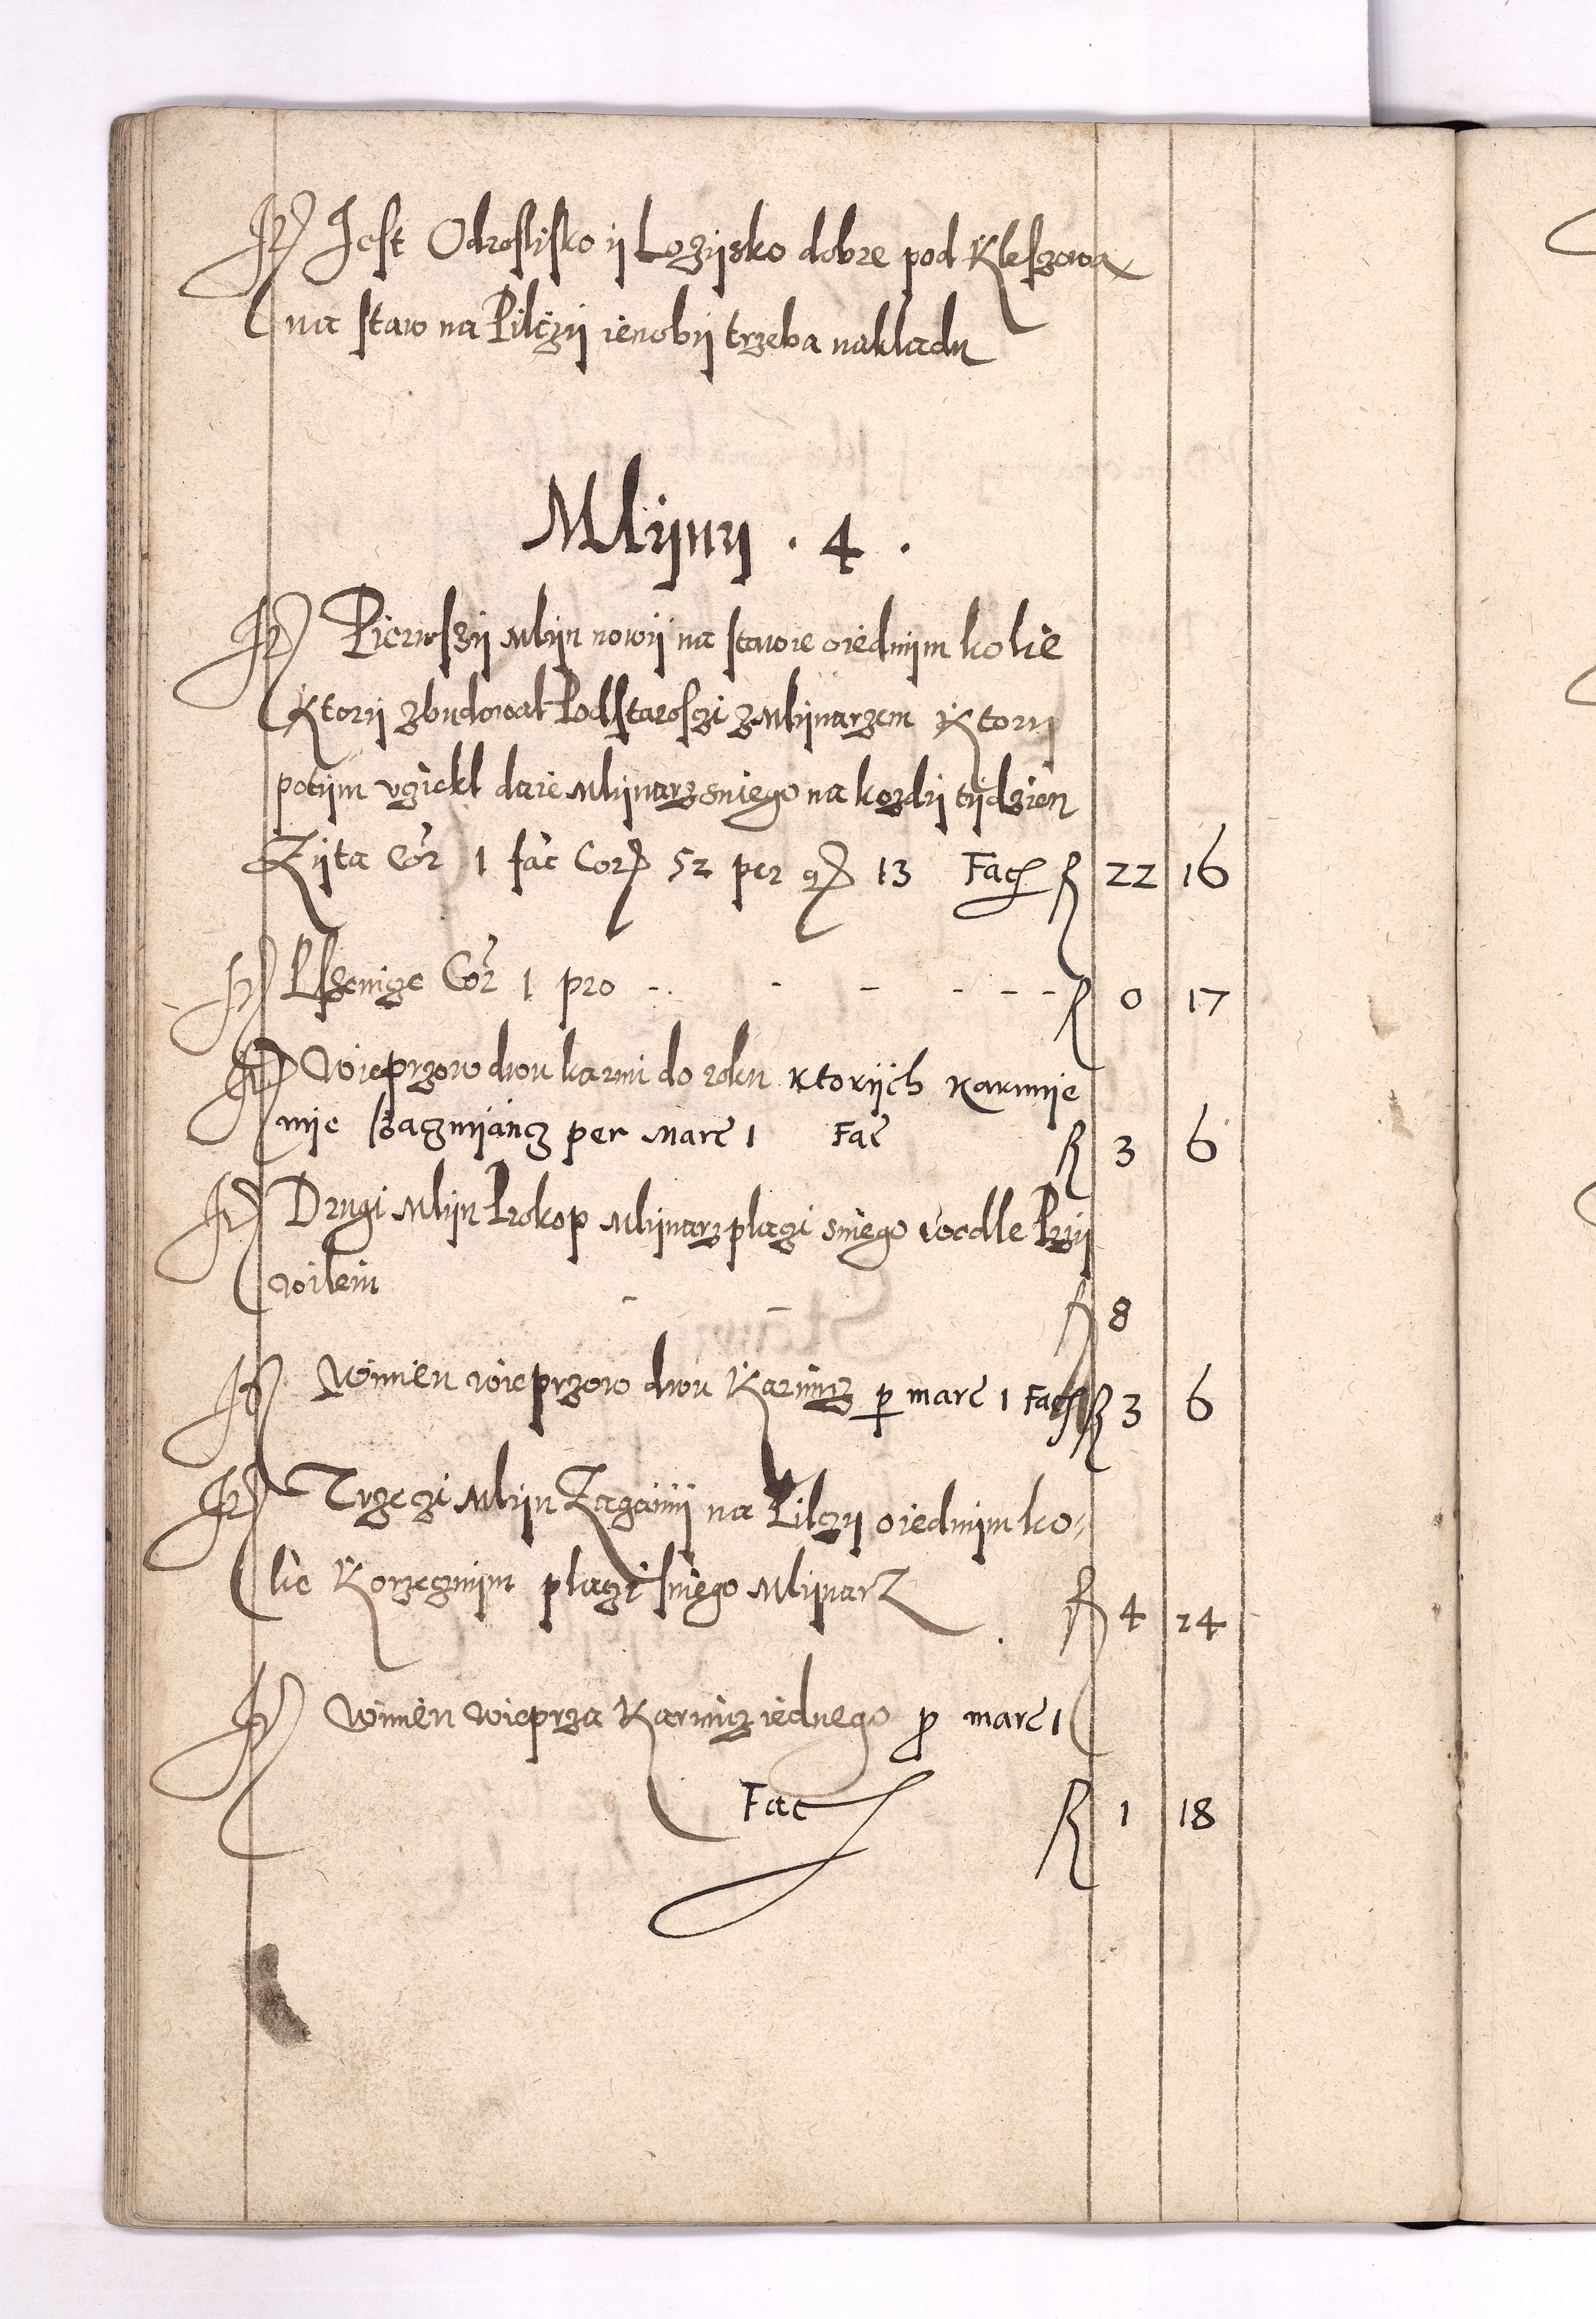 It Jest Odroslisko ÿ Lozÿsko dobre pod Kleszowa
na staw na Pilczÿ ienobÿ trzeba nakladu
Mlÿnÿ . 4 .
It Pierwszÿ Mlÿn nowÿ na stawie oiednÿm kolie
Ktorÿ zbudowal Podstaroszi zMlÿnarzem Ktorÿ
potÿm vziekl daie Mlÿnarz sniego na kozdÿ tÿdzien
Zÿta Cor 1 fac Cor 52 per g 13 Fac R 22 16
It Pszenize Cor 1 pro - - - - - - R 0 17
It Wieprzow dwu karmi do roku Ktorÿch Karmie
nie zaczÿnaiącz per Marc 1 Fac R 3 6
It Drugi Mlÿn Prokop Mlÿnarz plazi sniego wedle Przÿ
wileiu - - R 8
It Winien wieprzow dwu Karmicz p marc 1 Fac R 3 6
It Trzezi Mlÿn Zaganÿ na Pilczÿ oiednÿm ko-
lie Korzecznÿm plazi sniego Mlÿnarz R 4 24
It Winien wieprza Karmicz iednego p marc 1
Fac R 1 18